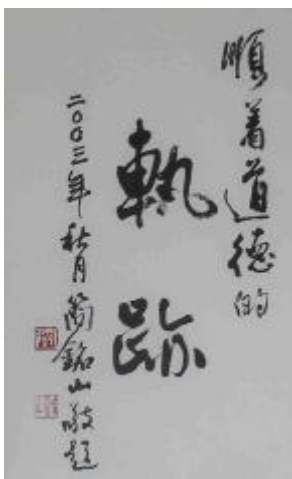 順着道德的
軌跡
二00三年秋月簡銘山敬題